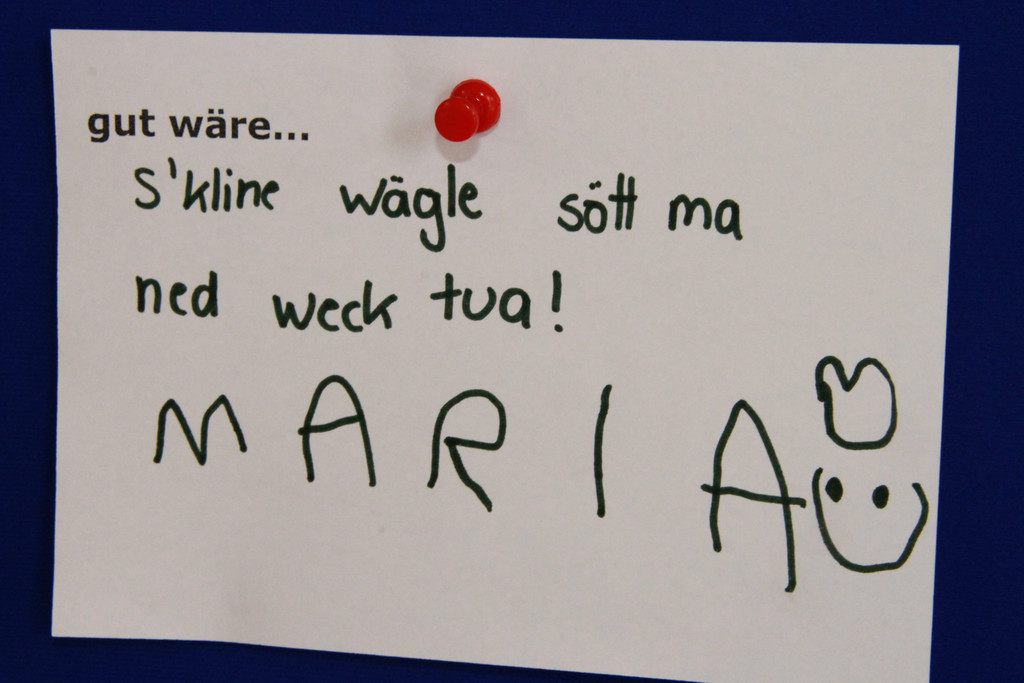 gut wäre...
S'kline wägle sött ma
ned weck tua!
MARIA